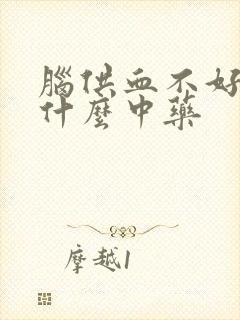 腦供血不好
什麼中藥
摩越1